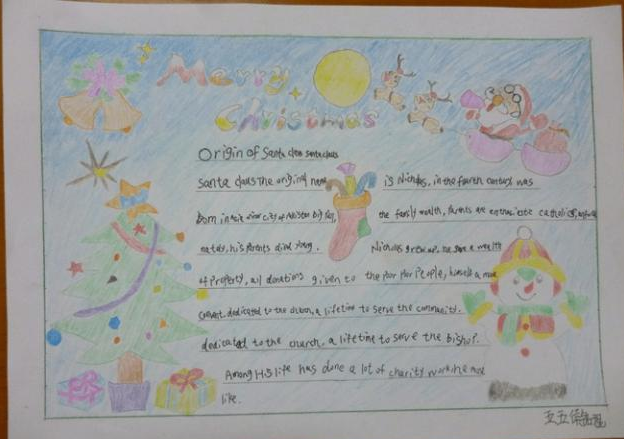 Merry
Christmas
Origin of Santa claus santa claus
Santa claus the original name is Nicholas, in the fourth century was
Born in Asia minor city of the family wealth, Parents are enthusiastic catholics,
his parents died young. Nicholas grew up, he gave a wealth
of property, all donations given to the poor poor People, himself a
dedicated to the church, a lifetime to serve the community.
dedicated to the church, a lifetime to serve the bishop.
Among His life has done a lot of charity work he most
like.
五五